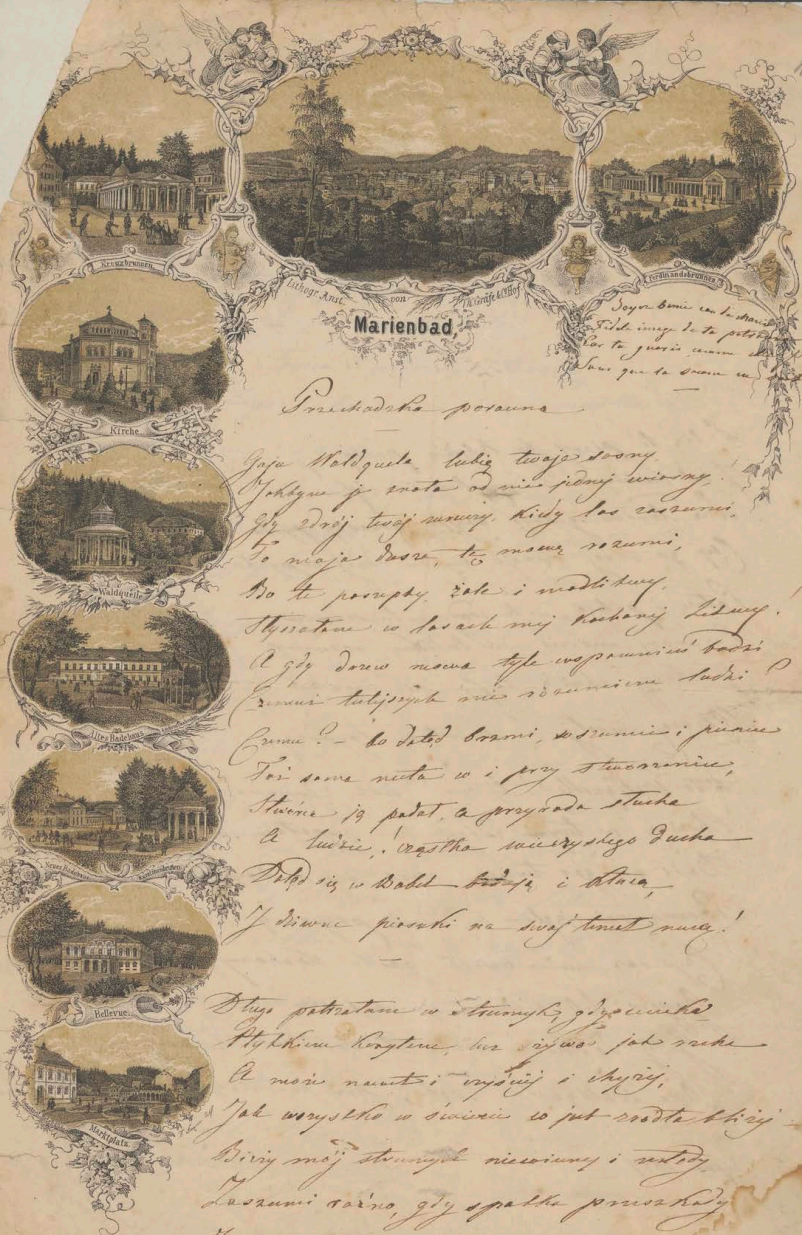 Kreuzbrunnen.
Lithogr. Anst. von Th. Gräfe bei Hof
Ferdinandsbrunnen.
Marienbad,
Kirche.
Waldquelle.
Altes Badehaus.
Neues Badehaus.
Bellevue.
Marktplatz.
Soyez bénie
Fidèle image de ta
Car tu guéris comme
Sans que ta source
Przechadzka poranna
Gaju Waldquele lubię twoje sosny,
Jakbym je znała od nie jednej wiosny,!
Gdy zdrój twój mruczy, kiedy las zaszumi,
To moja dusza, tę mowę rozumi,
Bo te poszepty, żale i modlitwy,
Słyszałam w lasach mej kochanej Litwy!
A gdy drzew mowa tyle wspomnień budzi
Czemuż tutejszych nie rozumiem ludzi?
Czemu? – bo dotąd brzmi, w szumie i pieniu
Taż sama nuta w i przy stworzeniu,
Stwórca ją podał, a przyroda słucha
A ludzie,! cząstka wieczystego ducha
Dotąd się w Babel i kłócą,
I dziwne piosnki na swój temat nucą!
Długo patrzałam w strumyk, gdy ucieka
Płytkiem korytem, lecz żywo jak rzeka
A może nawet i czyściej i chyżej,
Jak wszystko w świecie co jest źródła bliżej
Bieży mój strumyk niewinny i młody
Zaszumi raźno, gdy spotka przeszkody